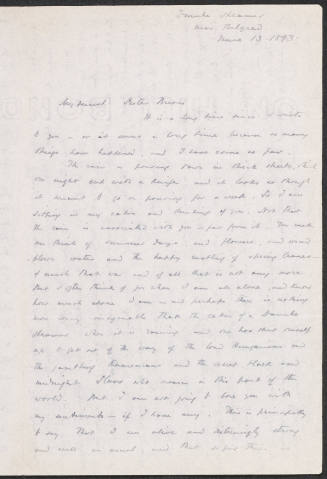 Danube Steamer
near Belgrad
June 13. 1893.
My dearest Sister Dixie
It is a long time since I wrote
to you — or it seems a long time because so many
things have happened, and I have come so far.
The rain is pouring down in thick sheets, that
one might cut with a knife and it looks as though
it meant to go on pouring for a week. So I am
sitting in my cabin and thinking of you. Not that
the rain is associated with you — far from it. You make
me think of summer days, and flowers, and wind
blown water and the happy
of much that was and of all that is not any more
But I often think of you when I am all alone, and know
how much alone I am and perhaps there is nothing
more imaginable than the cabin of a Danube
steamer when it is raining and one has shut oneself
up to get out of the way of the loud Hungarians and
the Roumanians and the
Slavs who in this part of the
world. But I am not going to bore you with
my sentiments — if I have any. This is principally
to say that I am alive and strong
and well as usual, and that so far there is